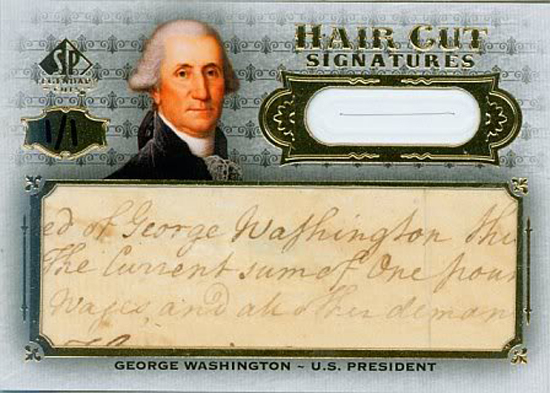 SP
LEGENDARY
CUTS
HAIR CUT
SIGNATURES
1/1
ed of George Washington the
The Current sum of One poun
Wages, and all other deman
GEORGE WASHINGTON ~ U.S. PRESIDENT